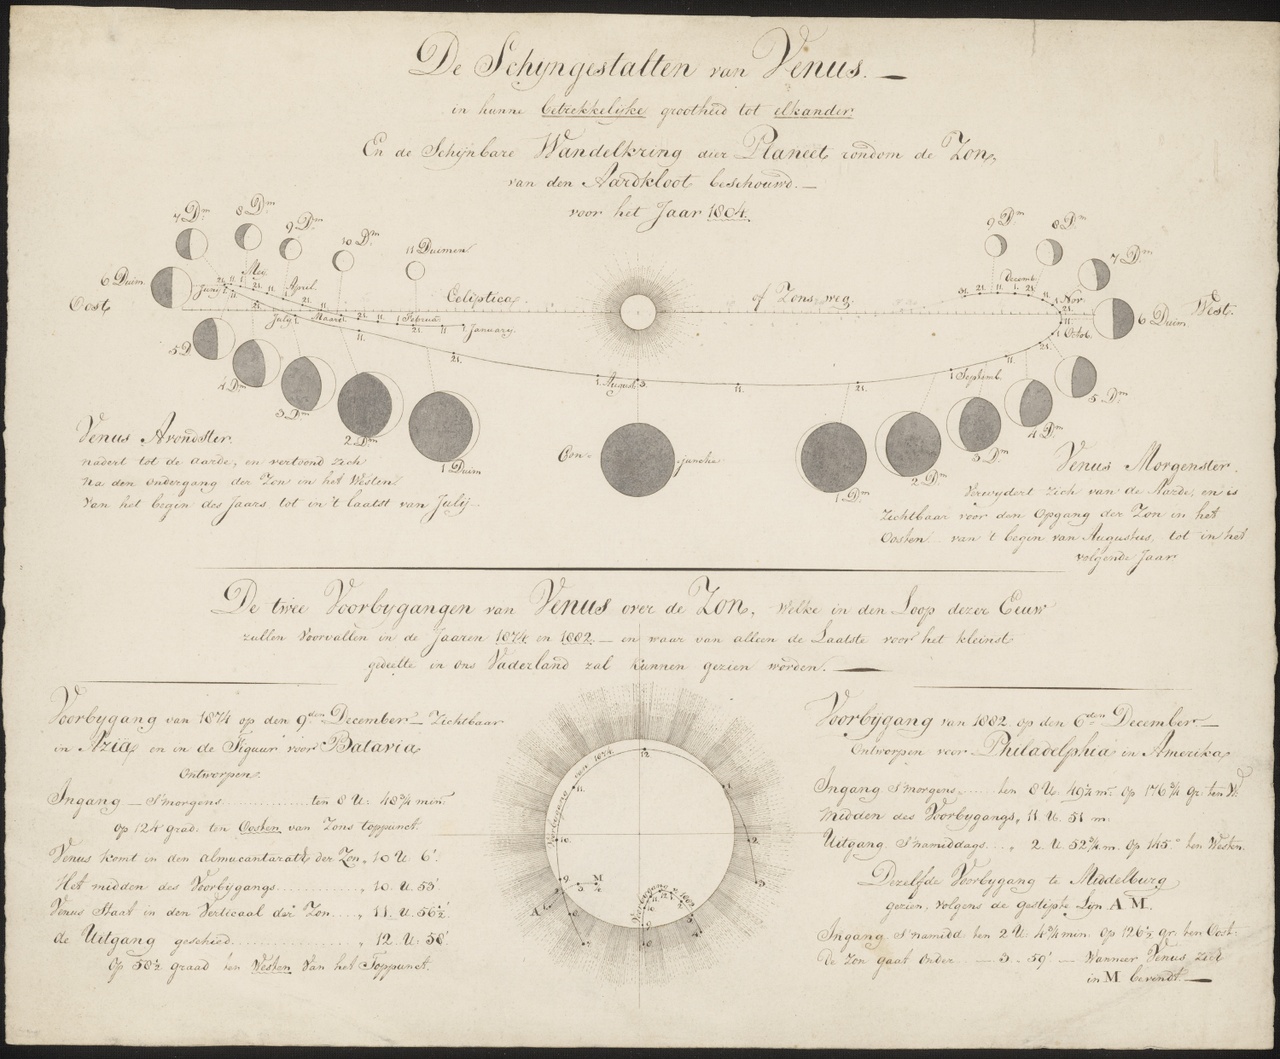 De Schyngestalten van Venus. —
in hunne betrekkelijke grootheid tot elkander
En de Schijnbare Wandelkring dier Planeet rondom de Zon,
van den Aardkloot beschouwd. —
voor het Jaar 1804.
7 Dm. 8 Dm. 9 Dm. 10 Dm. 11 Duimen
9 Dm. 8 Dm. 7 Dm.
6 Duim
Oost
Junij Mei April
Ecliptica of Zons weg.
Decemb. Nov. Octob.
6 Duim West.
July Maart Februa. January.
August. Septemb.
5 D. 4 Dm. 3 Dm. 2 Dm. 1 Duim
Con- junctie
1 Dm. 2 Dm. 3 Dm. 4 Dm. 5 Dm.
Venus Avondster.
nadert tot de aarde, en vertoond zich
na den ondergang der Zon in het Westen
Van het begin des Jaars tot in 't laatst van Julij
Venus Morgenster.
Verwydert zich van de Aarde, en is
zichtbaar voor den Opgang der Zon in het
Oosten van 't begin van Augustus, tot in het
volgende Jaar
De twee Voorbygangen van Venus over de Zon, welke in den Loop dezer Eeuw
zullen Voorvallen in de Jaaren 1874 en 1882 — en waar van alleen de Laatste voor het kleinst
gedeelte in ons Vaderland zal kunnen gezien worden. —
Voorbygang van 1874 op den 9den December — Zichtbaar
in Azia en in de Figuur voor Batavia
Ontworpen.
Ingang — S'morgens ............ ten 8 U. 48¾ min.
Op 124 grad. ten Oosten van Zons toppunt.
Venus komt in den almucantarath der Zon, 10 U. 6'.
Het midden des Voorbygangs ........, 10. U. 53'
Venus Staat in den Verticaal der Zon...., 11. U. 56½'.
de Uitgang geschied............, 12. U. 58'
Op 58½ graad ten Westen Van het Toppunt.
Voorbygang van 1874
12 11 10 9 8 7
A M
Voorbygang 1882
1 2 3
Voorbijgang van 1882. op den 6den December —
Ontworpen voor Philadelphia in Amerika
Ingang S'morgens...... ten 8 U. 49¼ m. Op 176¾ gr. ten
midden des Voorbygangs, 11 U. 51 m.
Uitgang S'namiddags...., 2 U. 52¾ m. Op 145° ten Westen.
Dezelfde Voorbygang te Middelburg
gezien, volgens de gestipte Lijn A M.
Ingang S'namidd ten 2 U. 4¾ min. Op 126½ gr. ten Oost.
De Zon gaat Onder — 3. 59' — Wanneer Venus zich
in M bevindt. —